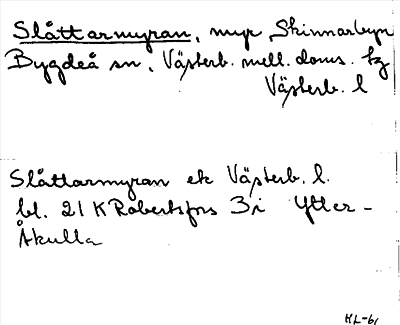 Slåttarmyran, myr Skinnarbyn
Bygdeå sn, Västerb. mell. doms. tg
Västerb. l
Slåttarmyran ek Västerb. l.
bl. 21 K Robertsfors 3i Ytter-
Åkulla
HL-61